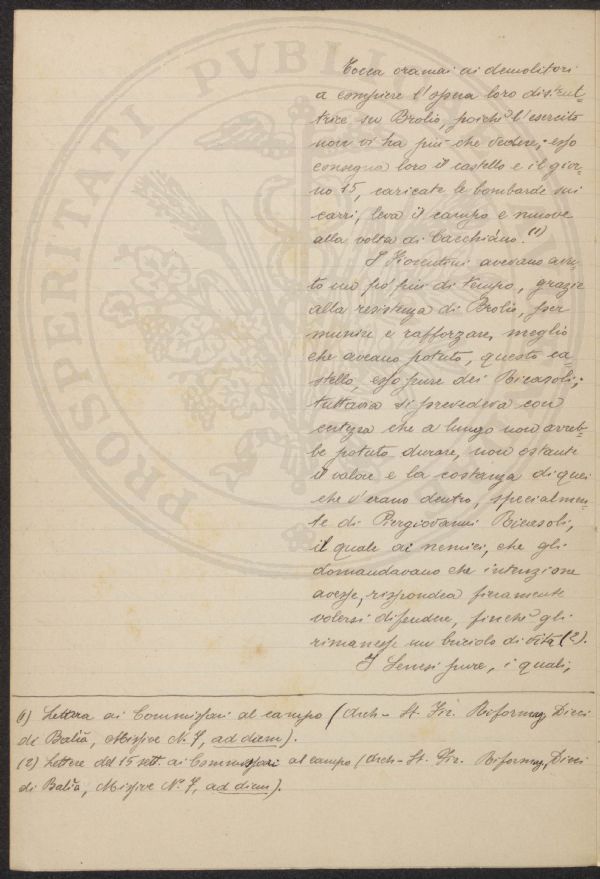 PROSPERITATI PVBLI
Tocca oramai ai demolitori
a compiere l'opera loro distrut=
trice su Brolio, poichè l'esercito
non vi ha più che vedere; esso
consegna loro il castello e il gior=
no 15, caricate le bombarde sui
carri, leva il campo e muove
alla volta di Cacchiano. (1)
I Fiorentini avevano avu=
to un po' più di tempo, grazie
alla resistenza di Brolio, per
munire e rafforzare, meglio
che aveano potuto, questo ca=
stello, esso pure dei Ricasoli;
tuttavia si prevedeva con
certezza che a lungo non avreb=
be potuto durare, non ostante
il valore e la costanza di quei
che v'erano dentro, specialmen=
te di Piergiovanni Ricasoli,
il quale ai nemici, che gli
domandavano che intenzione
avesse, rispondea fieramente
volersi difendere, finchè gli
rimanesse un briciolo di vita (2).
I Senesi pure, i quali,
(1) Lettera ai Commissari al campo (Arch. St. Fir. Riformag. Dieci
di Balìa, Missive N. 7, ad diem).
(2) Lettere del 15 sett. ai Commissari al campo (Arch. St. Fir. Riformag. Dieci
di Balìa, Missive N.° 7, ad diem).